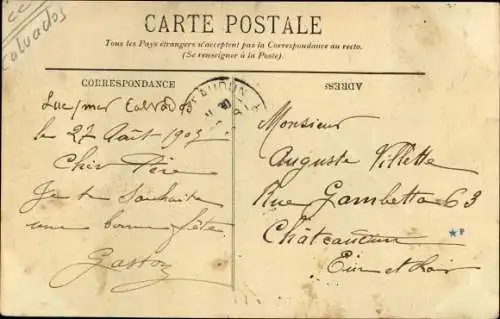 CC
Calvados
CARTE POSTALE
Tous les Pays étrangers n'acceptent pas la Correspondance au recto.
(Se renseigner à la Poste).
CORRESPONDANCE
Luc s/mer Calvados
le 27 Août 1903
Cher Père
Je te souhaite
une bonne fête
Gaston
ADRESSE
Monsieur
Auguste Villette
Rue Gambetta 63
Châteaudun
Eure et Loir